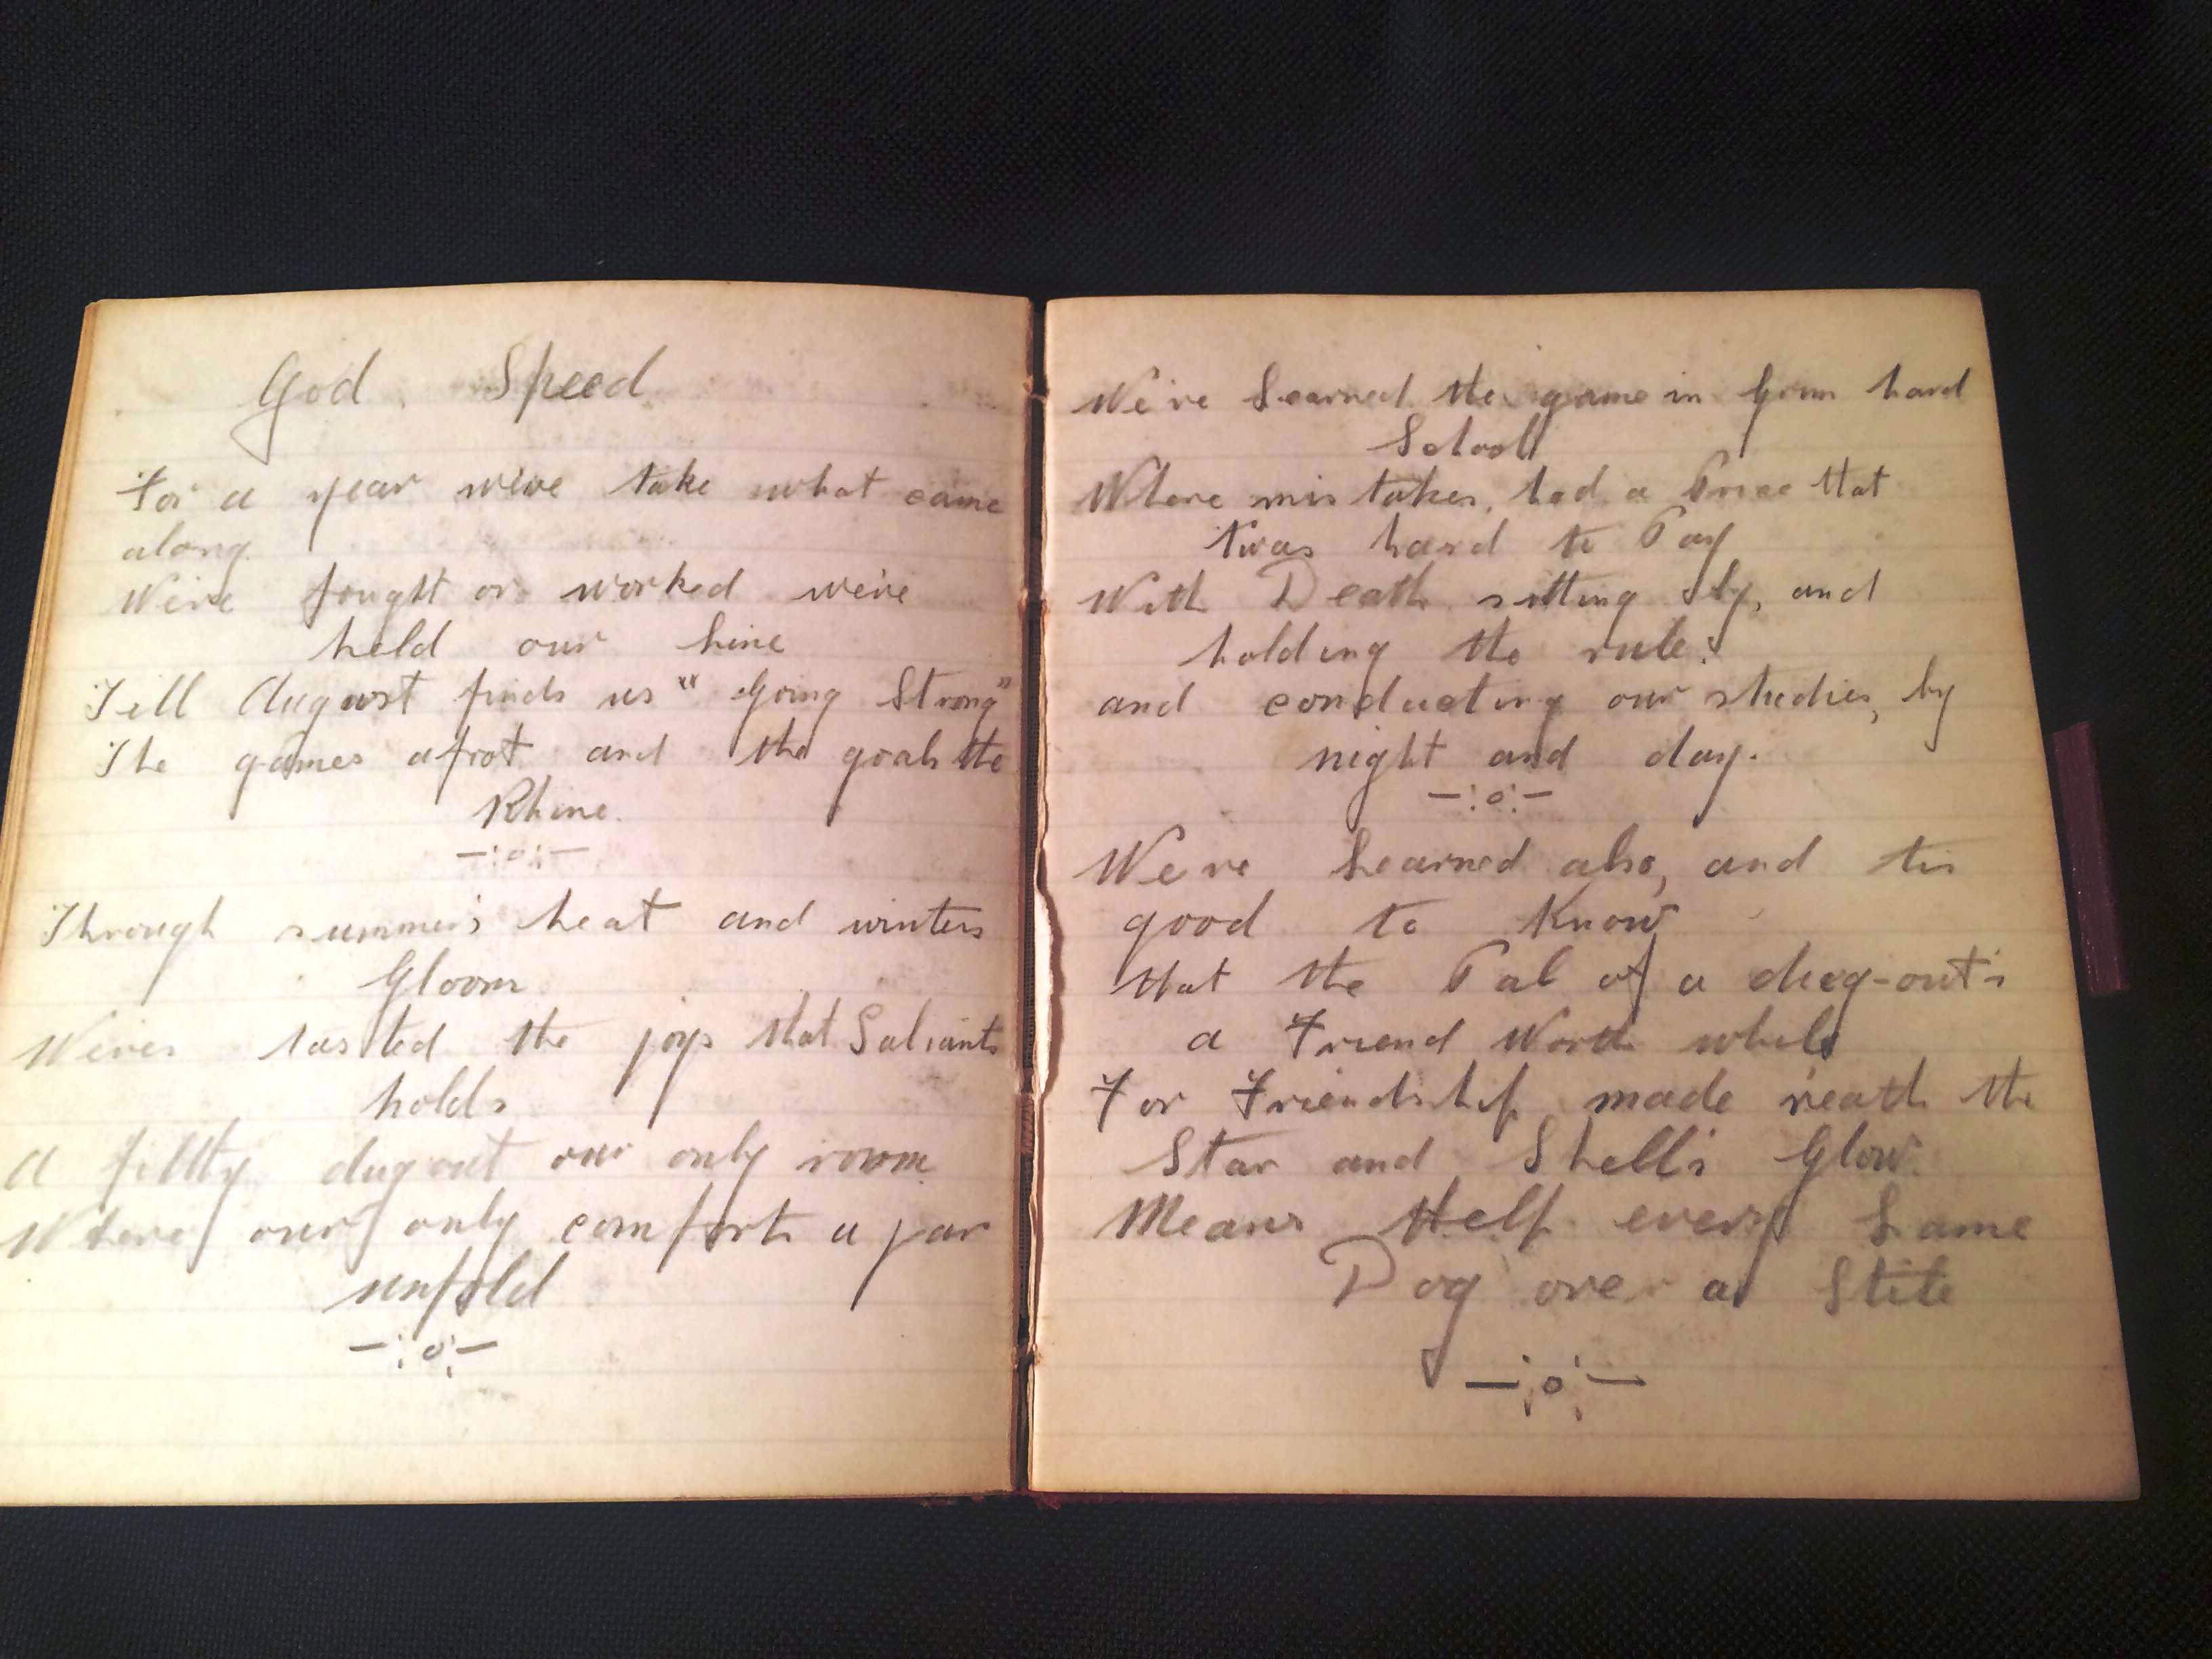 God Speed
For a year we've take what came
along
We've fought or worked we've
held our Line
Till August finds us "Going Strong"
The games afoot and the goals the
Rhine.
—:o:—
Through summer's heat and winters
Gloom
We've tasted the joys that Saliants
holds
A filthy dugout our only room
Where our only comforts a jar
unfold
—:o:—
We've Learned the game in Grim hard
School
Where mistakes, had a Price that
twas hard to Pay
With Death sitting by, and
holding the rule.
and conducting our studies, by
night and day.
—:o:—
We've Learned also, and tis
good to Know
that the Pal of a dug-out's
a Friend Worth while
For Friendship made 'neath the
Star and Shell's Glow.
Means Help every Lame
Dog over a Stile
—:o:—